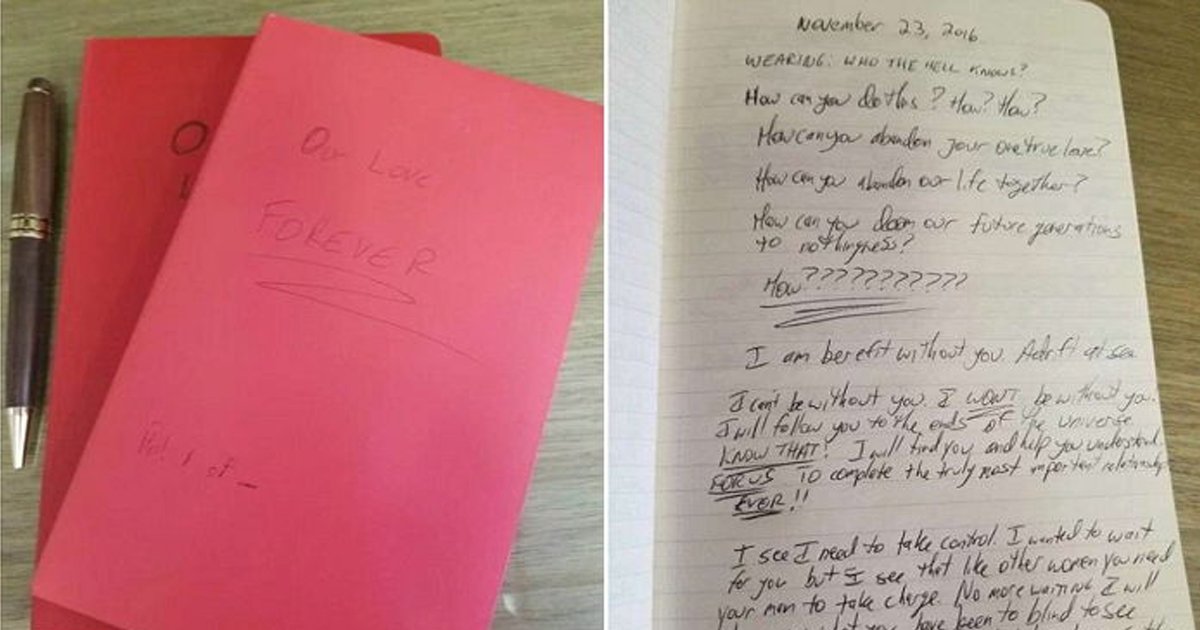 O
Our Love
FOREVER
Vol. 1 of _
November 23, 2016
WEARING: WHO THE HELL KNOWS?
How can you do this? How? How?
How can you abandon your one true love?
How can you abandon our life together?
How can you doom our future generations
to nothingness?
How???????????
I am bereft without you. Adrift at sea
I can't be without you. I WON'T be without you.
I will follow you to the ends of the universe
KNOW THAT! I will find you and help you understand.
FOR US. To complete the truly most important relationship
EVER!!
I see I need to take control. I wanted to wait
for you but I see that like other women you need
your man to take charge. No more waiting, I will
you have been to blind to see